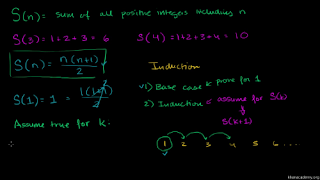 S(n) = sum of all positive integers including n
S(3) = 1+2+3 = 6 S(4) = 1+2+3+4 = 10
S(n) = n(n+1) / 2
Induction
1) Base case prove for 1
2) Induction assume for S(k)
S(k+1)
S(1) = 1 = 1(1+1) / 2
Assume true for k.
1 2 3 4 5 6 ....
khanacademy.org